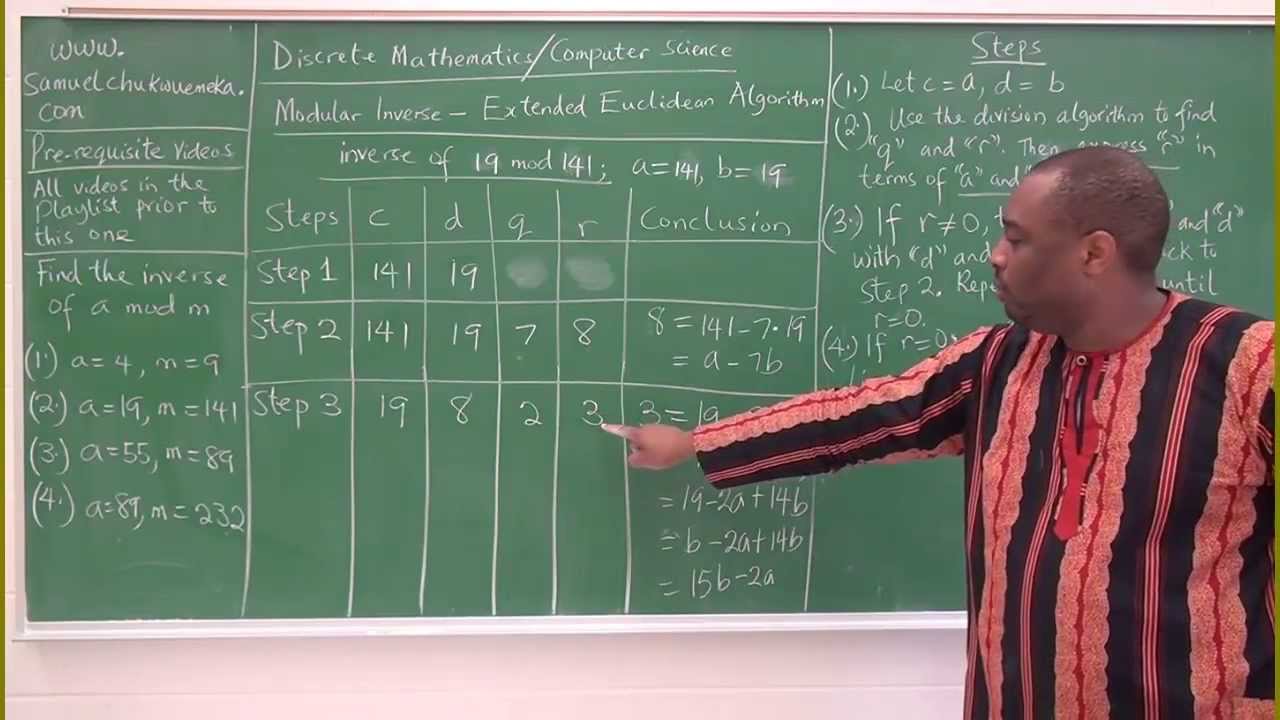 www.
Samuelchukwuemeka.
com
Pre-requisite Videos
All videos in the
Playlist prior to
this one
Find the inverse
of a mod m
(1.) a=4, m=9
(2.) a=19, m=141
(3.) a=55, m=89
(4.) a=89, m=232
Discrete Mathematics/Computer science
Modular Inverse – Extended Euclidean Algorithm
inverse of 19 mod 141; a=141, b=19
Steps c d q r Conclusion
Step 1 141 19
Step 2 141 19 7 8 8 = 141 – 7•19
= a – 7b
Step 3 19 8 2 3 3 = 19
= 19–2a+14b
= b–2a+14b
= 15b–2a
Steps
(1.) Let c=a, d=b
(2.) Use the division algorithm to find
"q" and "r". Then express "r" in
terms of "a" and
(3.) If r≠0, and "d"
with "d" and to
Step 2. until
r=0.
(4.) If r=0,